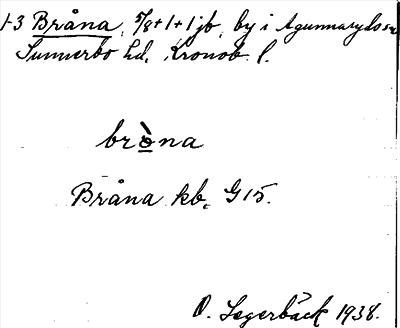 1-3 Bråna, 5/8+1+1 jb, by i Agunnaryds sn
Sunnerbo hd, Kronob. l.
bròna
Bråna kb. G15.
O. Lagerbäck 1938.